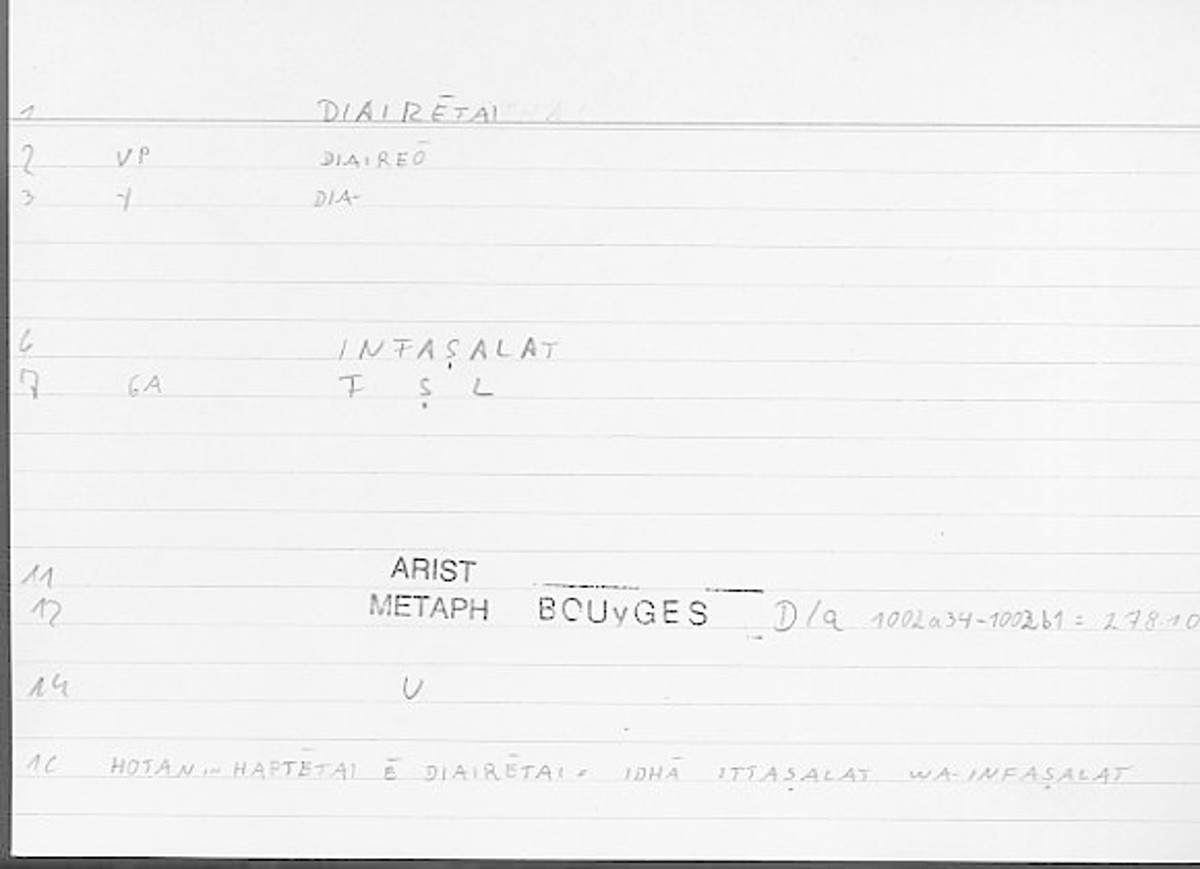 1 DIAIRĒTAI
2 VP DIAIREŌ
3 Y DIA-
6 INFAṢALAT
7 GA F Ṣ L
11 ARIST
12 METAPH BOUyGES D/a 1002a34-1002b1 = 278.10
14 U
16 HOTAN ... HAPTĒTAI Ē DIAIRĒTAI = IDHĀ ITTAṢALAT WA-INFAṢALAT